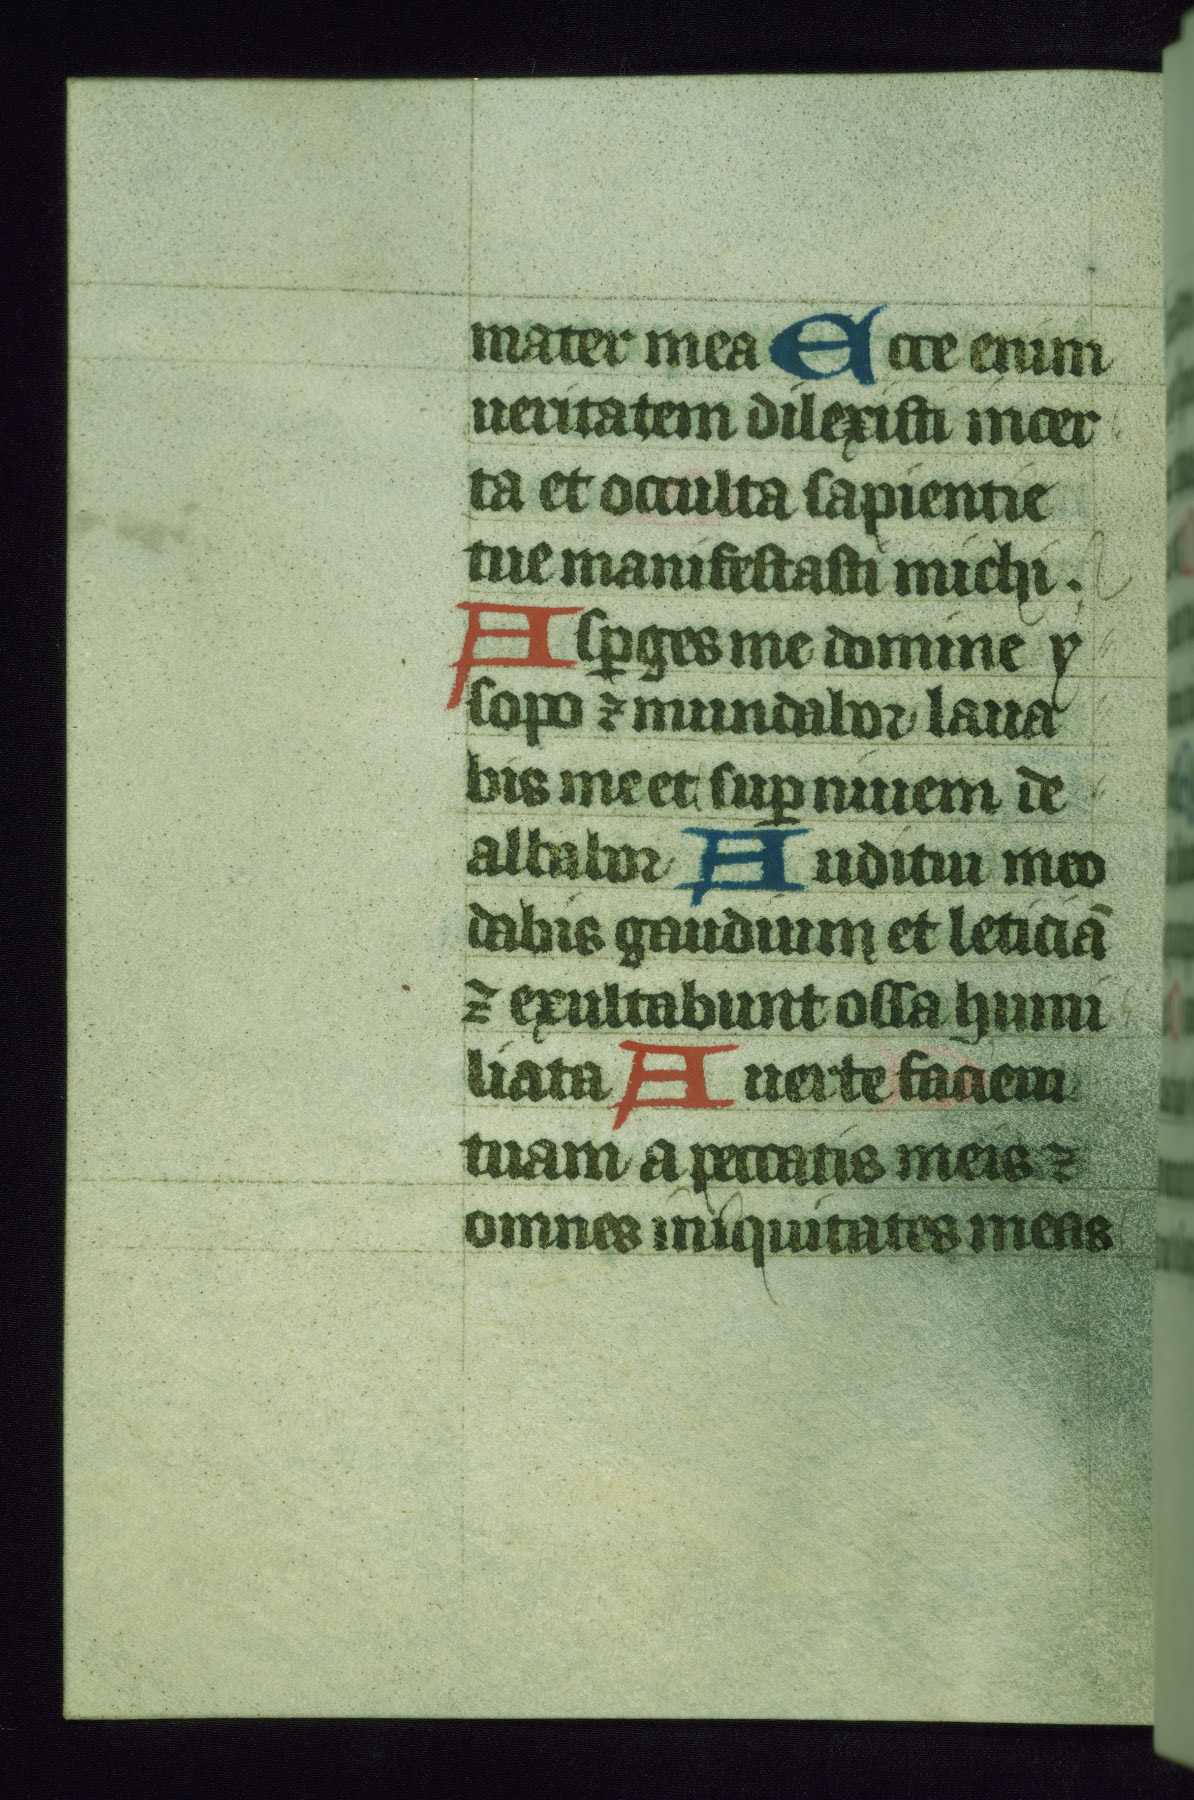 mater mea Ecce enim
ueritatem dilexisti incer
ta et occulta sapientie
tue manifestasti michi.
Asꝑges me domine y
sopo ⁊ mundabor laua
bis me et suꝑ niuem de
albabor Auditui meo
dabis gaudium et leticiā
⁊ exultabunt ossa humi
liata Auerte faciem
tuam a peccatis meis ⁊
omnes iniquitates meas